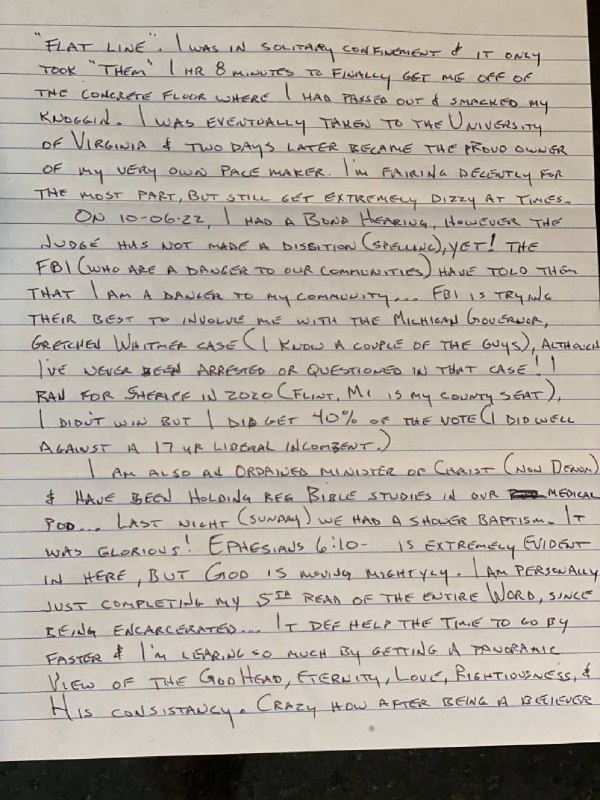 "FLAT LINE". I WAS IN SOLITARY CONFINEMENT & IT ONLY
TOOK "THEM" 1 HR 8 MINUTES TO FINALLY GET ME OFF OF
THE CONCRETE FLOOR WHERE I HAD PASSED OUT & SMACKED MY
KNOGGIN. I WAS EVENTUALLY TAKEN TO THE UNIVERSITY
OF VIRGINIA & TWO DAYS LATER BECAME THE PROUD OWNER
OF MY VERY OWN PACE MAKER. I'M FAIRING DECENTLY FOR
THE MOST PART, BUT STILL GET EXTREMELY DIZZY AT TIMES.
ON 10-06-22, I HAD A BOND HEARING, HOWEVER THE
JUDGE HAS NOT MADE A DISBITION (SPELLING), YET! THE
FBI (WHO ARE A DANGER TO OUR COMMUNITIES) HAVE TOLD THEM
THAT I AM A DANGER TO MY COMMUNITY... FBI IS TRYING
THEIR BEST TO INVOLVE ME WITH THE MICHIGAN GOVERNOR,
GRETCHEN WHITMER CASE (I KNOW A COUPLE OF THE GUYS), ALTHOUGH
I'VE NEVER BEEN ARRESTED OR QUESTIONED IN THAT CASE! I
RAN FOR SHERIFF IN 2020 (FLINT, MI IS MY COUNTY SEAT),
I DIDN'T WIN BUT I DID GET 40% OF THE VOTE (I DID WELL
AGAINST A 17 YR LIBERAL INCOMBENT.)
I AM ALSO AN ORDAINED MINISTER OF CHRIST (NON DENOM)
& HAVE BEEN HOLDING REG BIBLE STUDIES IN OUR MEDICAL
POD... LAST NIGHT (SUNDAY) WE HAD A SHOWER BAPTISM. IT
WAS GLORIOUS! EPHESIANS 6:10- IS EXTREMELY EVIDENT
IN HERE, BUT GOD IS MOVING MIGHTYLY. I AM PERSONALLY
JUST COMPLETING MY 5TH READ OF THE ENTIRE WORD, SINCE
BEING ENCARCERATED... IT DEF HELP THE TIME TO GO BY
FASTER & I'M LEARING SO MUCH BY GETTING A PANORAMIC
VIEW OF THE GODHEAD, ETERNITY, LOVE, RIGHTIOUSNESS, &
HIS CONSISTANCY. CRAZY HOW AFTER BEING A BELIEVER